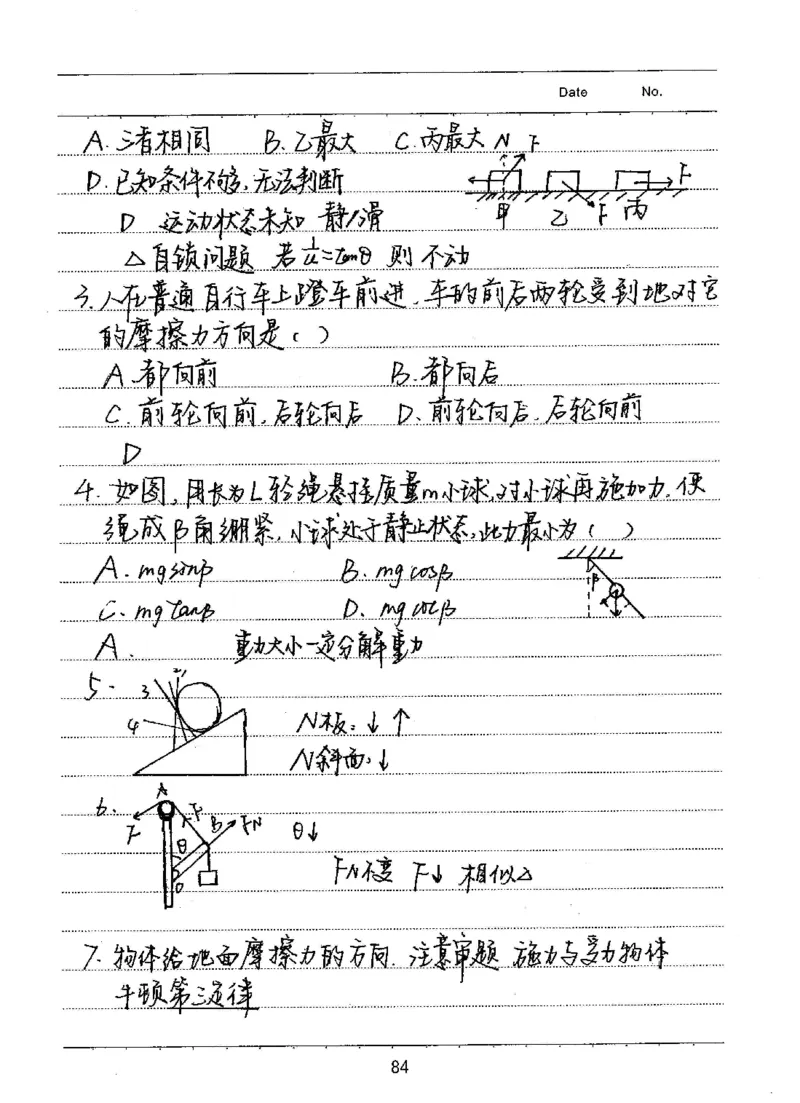 Date No.
A. 三者相同 B. 乙最大 C. 丙最大 N F
D. 已知条件不够, 无法判断 F
甲 乙 F 丙
D 运动状态未知 静/滑
△自锁问题 若 1/μ=tanθ 则 不动
3. 人在普通自行车上蹬车前进, 车的前后两轮受到地对它
的摩擦力方向是 ( )
A. 都向前 B. 都向后
C. 前轮向前, 后轮向后 D、前轮向后. 后轮向前
D
4. 如图, 用长为L轻绳悬挂质量m小球, 对小球再施加力, 使
绳成β角绷紧, 小球处于静止状态, 此力最小为 ( )
A. mgsinβ B. mgcosβ
β
C. mgtanβ D. mgcotβ
A. 重力大小一定分解重力
5. 3 4
N板: ↓ ↑
N斜面: ↓
6. A F F B FN θ↓
θ
O
FN不变 F↓ 相似△
7. 物体给地面摩擦力的方向. 注意审题 施力与受力物体
牛顿第三定律
84